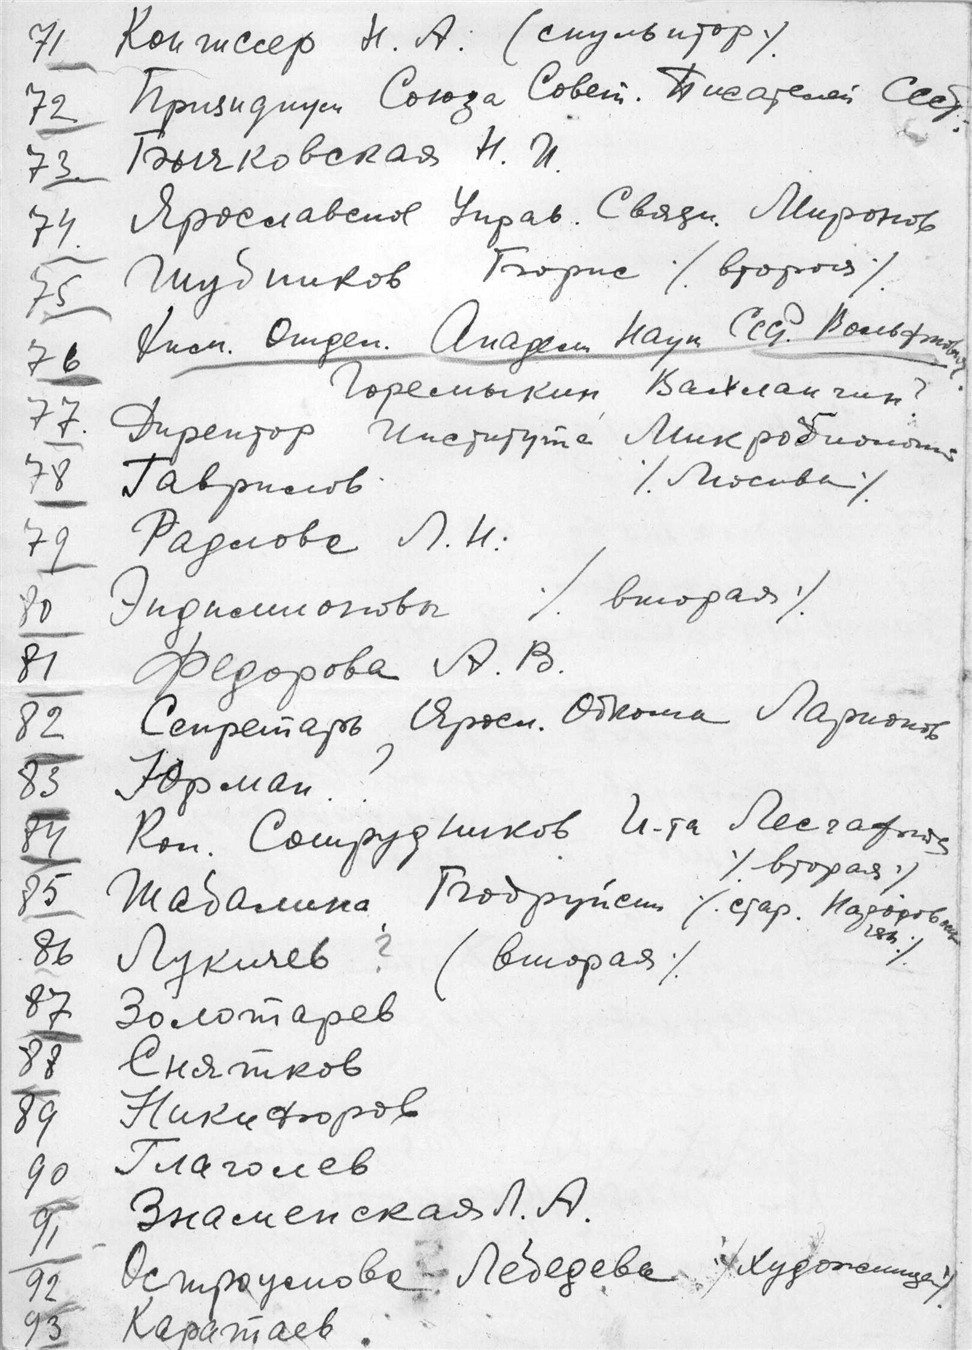 71 Конгиссер Н. А. (скульптор)
72 Призидиум Союза Совет. Писателей СССР.
73. Бычковская Н. И.
74. Ярославское Управ. Связи. Миронов
75 Шубников Борис /. вторая /.
76 Хим. Отдел. Академ Наук СССР. Вольфкович.
Горемыкин, Вахлангин?
77. Директор Института Микробиологии
78 Гаврилов /. Москва /.
79 Радлова Л. Н.
80 Эндимионовы /. вторая /.
81 Федорова А. В.
82 Секретарь Яросл. Обкома Ларионов
83 Юрман ?
84 Кол. Сотрудников И-та Лесгафта
/. вторая /.
85 Шабалина, Бобруйск /. стар.
86 Лукичев ? ( вторая /.
87 Золотарев
88 Снятков
89 Никифоров
90 Глаголев
91 Знаменская Л. А.
92 Остроумова - Лебедева /. художница /.
93 Каратаев.